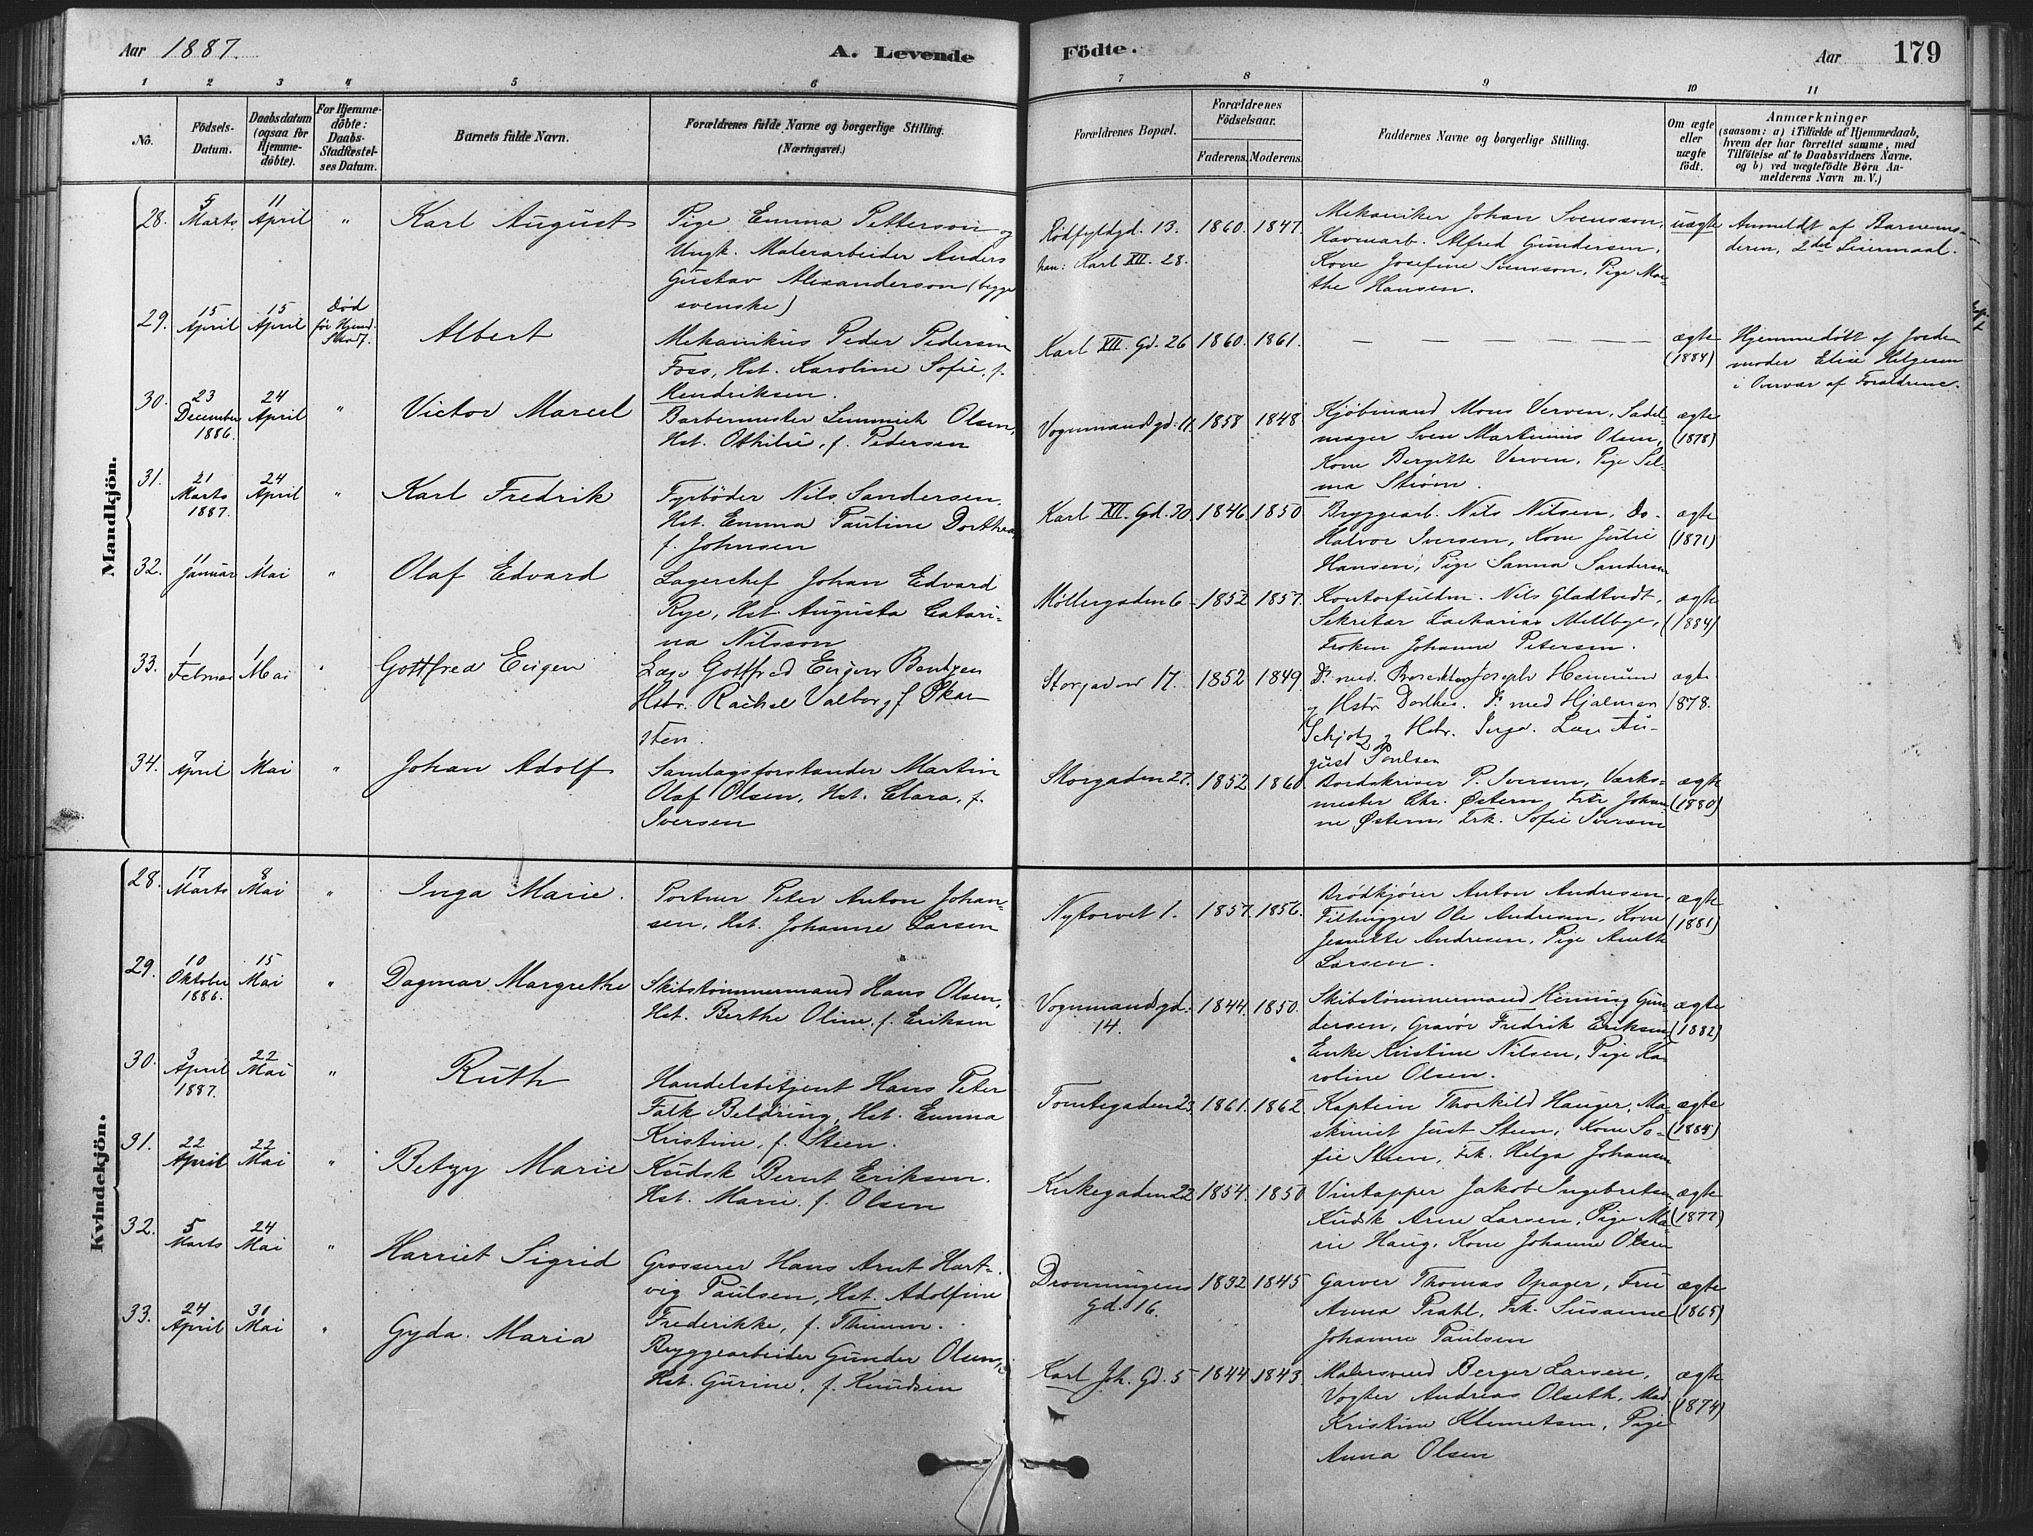 Aar 1887.
A. Levende
Födte.
Aar
179
1 2 3 4 5 6 7 8 9 10 11
No.
Födsels-
Datum.
Daabsdatum
(ogsaa for
Hjemme-
döbte).
For Hjemme-
döbte:
Daabs-
Stadfæstel-
ses Datum.
Barnets fulde Navn.
Forældrenes fulde Navne og borgerlige Stilling.
(Næringsvei.)
Forældrenes Bopæl.
Forældrenes
Födselsaar.
Faderens. Moderens.
Faddernes Navne og borgerlige Stilling.
Om ægte
eller
uægte
födt.
Anmærkninger
(saasom: a) i Tilfælde af Hjemmedaab,
hvem der har forrettet samme, med
Tilföielse af to Daabsvidners Navne.
og b) ved uægtefödte Börn An-
melderens Navn m. V.)
Mandkjön.
28. 5 Marts 11 April " Karl August
Pige Emma Petterson og
Ungk. Malerarbeider Anders
Gustav Alexanderson (begge
svenske)
Rödfyldgd. 13.
han: Karl XII. 28.
1860. 1847.
Mekaniker Johan Svensson,
Havnearb. Alfred Gundersen,
Kone Josefine Svensson, Pige Mar-
the Hansen.
uægte
Anmeldt af Barnemo-
deren, 2det Leiermaal.
29. 15 April 15 April Död
før Hjemd.
Stadf.
Albert
Mekanikus Peder Pedersen
Foss, Hst. Karoline Sofie, f.
Hendriksen.
Karl XII. Gd. 26 1860. 1861.
— — — — — —
ægte
(1884)
Hjemmedöbt af Jorde-
moder Elise Helgesen
i Overvær af Forældrene.
30. 23 December 1886. 24 April " Victor Marcel
Barbermester Lemmich Olsen,
Hst. Othilie, f. Pedersen
Vognmandsgd. 11. 1858 1848
Kjöbmand Mons Verven, Sadel-
mager Sven Martinius Olsen,
Kone Bergitte Verven, Pige Sel-
ma Ström.
ægte
(1878)
31. 21 Marts 1887. 24 April " Karl Fredrik
Fyrböder Nils Sandersen,
Hst. Emma Pauline Dorthea,
f. Johnsen
Karl XII. Gd. 30. 1846 1850
Bryggearb. Nils Nilsen, Do-
Halvor Iversen, Kone Julie
Hansen, Pige Sanna Sandersen
ægte
(1871)
32. 11 Januar 1 Mai " Olaf Edvard
Lagerchef Johan Edvard
Rye, Hst. Augusta Catari-
na Nilsson
Möllergaden 6 1852 1857.
Kontorfuldm. Nils Gladtvedt,
Sekretær Zacharias Mellbye,
Fröken Johanne Petersen.
ægte
(1884)
33. 1 Februar 1 Mai " Gottfred Eugen
Læge Gottfred Eugen Bentzen
Hstr. Rachel Valborg f. Skar
sten.
Storgaden 17. 1852 1849.
Dr. med. Prosektor Joseph Heimund
og Hstr. Dorthea. Dr med Hjalmar
Schjötz og Hstr. Inga. Læge Au-
gust Poulsen
ægte
1878.
34. 7 April 1 Mai " Johan Adolf
Samlagsforstander Martin
Olaf Olsen, Hst. Clara, f.
Iversen
Storgaden 27. 1852 1860.
Bordskriver P. Iversen, Værks-
mester Chr. Östern, Frk Johan-
ne Östern, Frk. Sofie Iversen
ægte
(1880)
Kvindekjön.
28. 17 Marts 8 Mai " Inga Marie.
Portner Peter Anton Johan-
sen, Hst. Johanne Larsen
Nytorvet 1. 1857. 1856.
Brödkjörer Anton Andresen,
Filhugger Ole Andresen, Kone
Jeanette Andresen, Pige Anette
Larsen.
ægte
(1881)
29. 10 Oktober 1886. 15 Mai " Dagmar Margrethe
Skibstömmermand Hans Olsen,
Hst. Berthe Oline, f. Eriksen
Vognmandsgd.
14.
1844. 1850.
Skibstömmermand Henning Gun-
dersen, Gravör Fredrik Eriksen,
Enke Kristine Nilsen, Pige Ka-
roline Olsen.
ægte
(1882)
30. 3 April 1887. 22 Mai " Ruth
Handelsbetjent Hans Peter
Falk Beldring, Hst. Emma
Kristine, f. Steen.
Tomtegaden 23. 1861. 1862.
Kaptein Thorkild Hauger, Ma-
skinist Just Steen, Kone So-
fie Steen, Frk. Helga Johansen
ægte
31. 22 April 22 Mai " Betzy Marie
Kudsk Bernt Eriksen.
Hst. Marie. f. Olsen
Kirkegaden 22 1854. 1850
Vintapper Jakob Ingebretsen
Kudsk Arne Larsen, Pige Ma-
rie Haug, Kone Johanne Olsen
ægte
(1877)
32. 5 Marts 24 Mai " Harriet Sigrid
Grosserer Hans Arnt Hart-
vig Paulsen, Hst. Adolfine
Frederikke, f. Thimm.
Dronningens
gd. 16.
1832 1845
Garver Thomas Opager, Fru
Anna Prahl, Frk. Susanne
Johanne Paulsen
ægte
(1865)
33. 24 April 30 Mai " Gyda. Maria
Bryggearbeider Gunder Olsen,
Hst. Gurine, f. Knudsen
Karl Joh. Gd. 5 1844. 1843
Malersvend Berger Larsen,
Vogter Andreas Olseth, Mad.
Kristine Klemetsen, Pige
Anna Olsen
ægte
(1874)